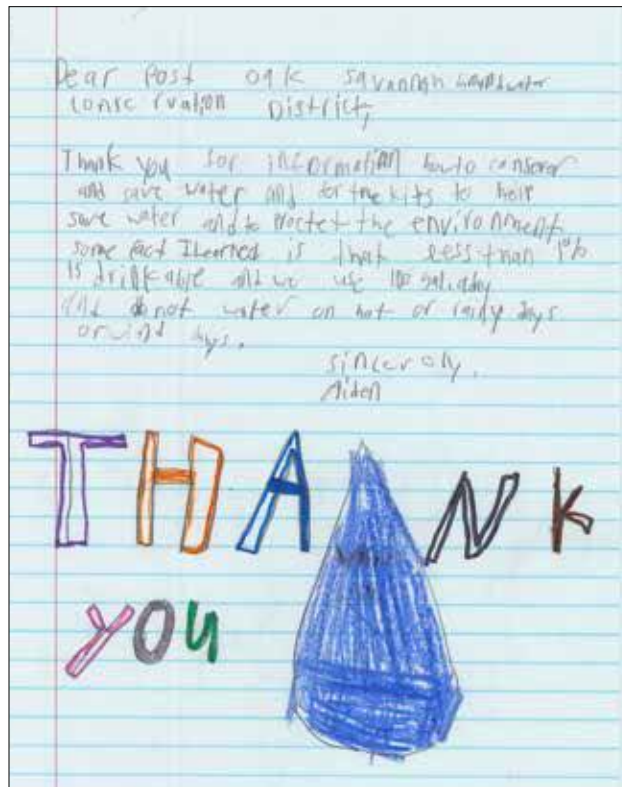 Dear Post oak savannah Groundwater
conservation District,
Thank you for information how to conserer
and save water and for the kits to help
save water and to Proctet the environment.
some fact I learned is that less than 1%
is drinkable and we use 100 gal. aday
and do not water on hot or rainy days
or wind days.
sincerely,
Aiden
THANK
you